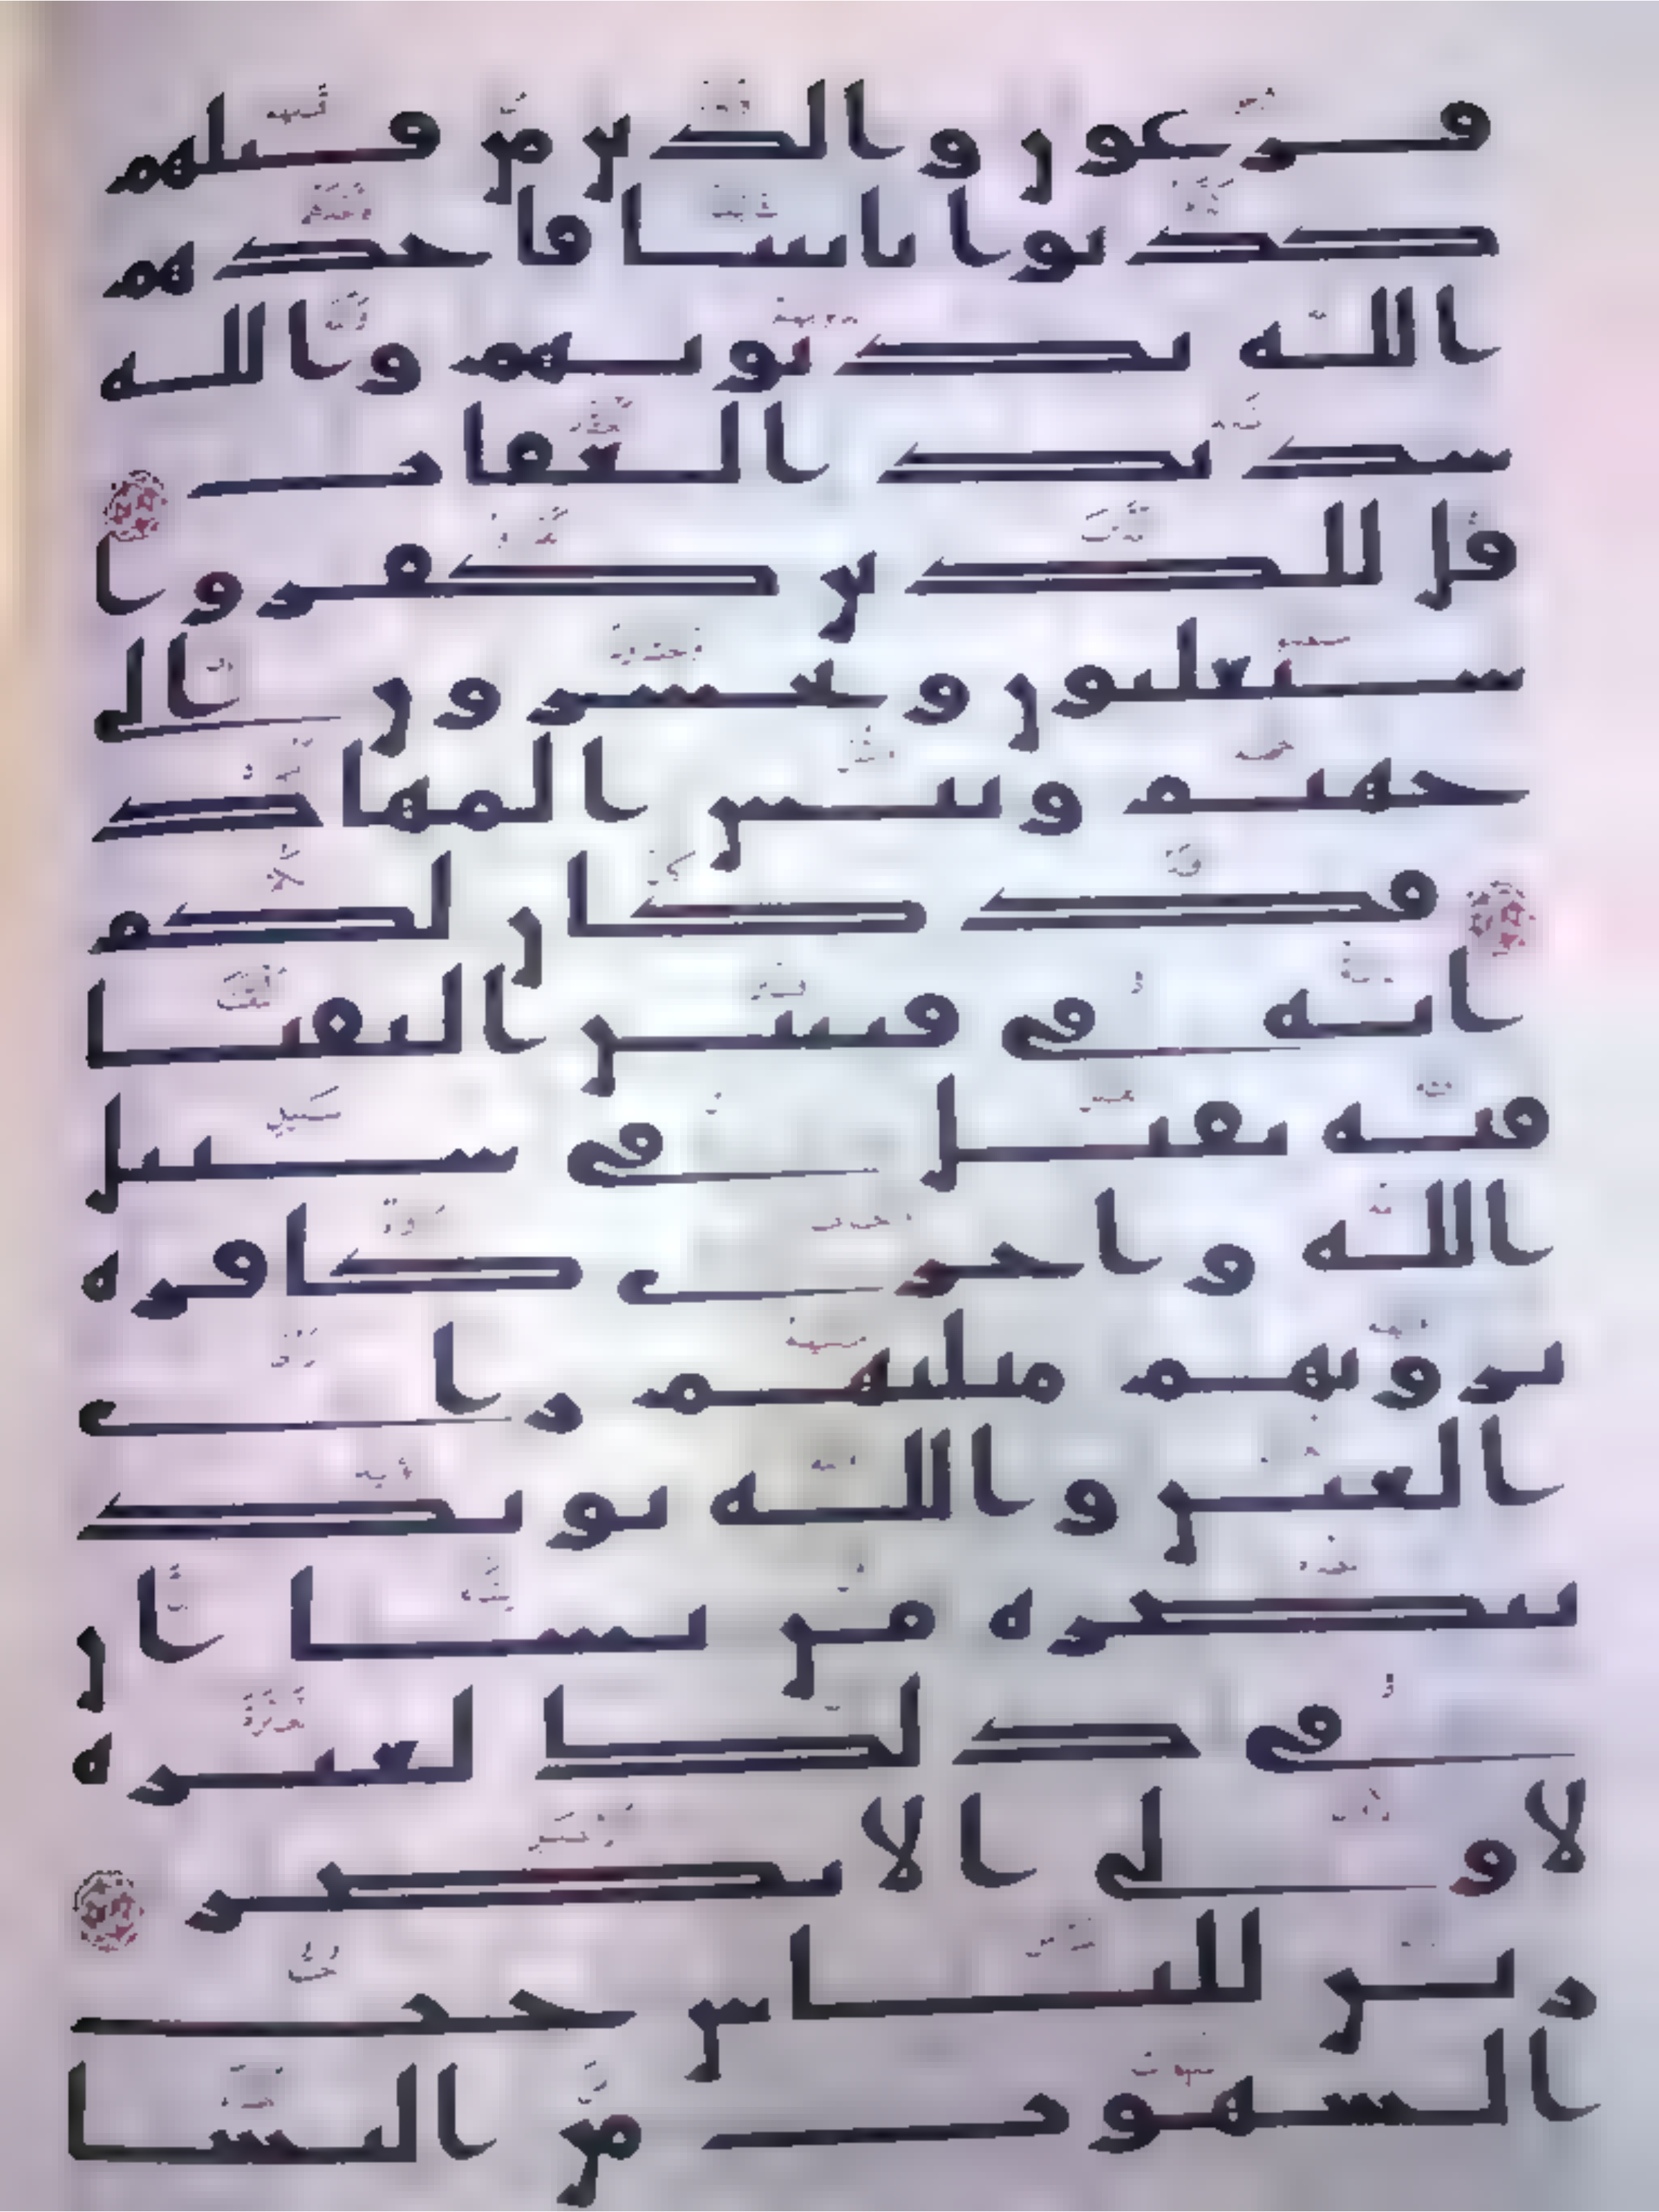 فرعون والذين من قبلهم
كذبوا بايتنا فاخذهم
الله بذنوبهم والله
شديد العقاب
قل للذين كفروا
ستغلبون وتحشرون الى
جهنم وبئس المهاد
قد كان لكم
اية في فئتين التقتا
فئة تقتل في سبيل
الله واخرى كافرة
يرونهم مثليهم راي
العين والله يويد
بنصره من يشا ان
في ذلك لعبرة
لاولي الابصر
زين للناس حب
الشهوت من النسا